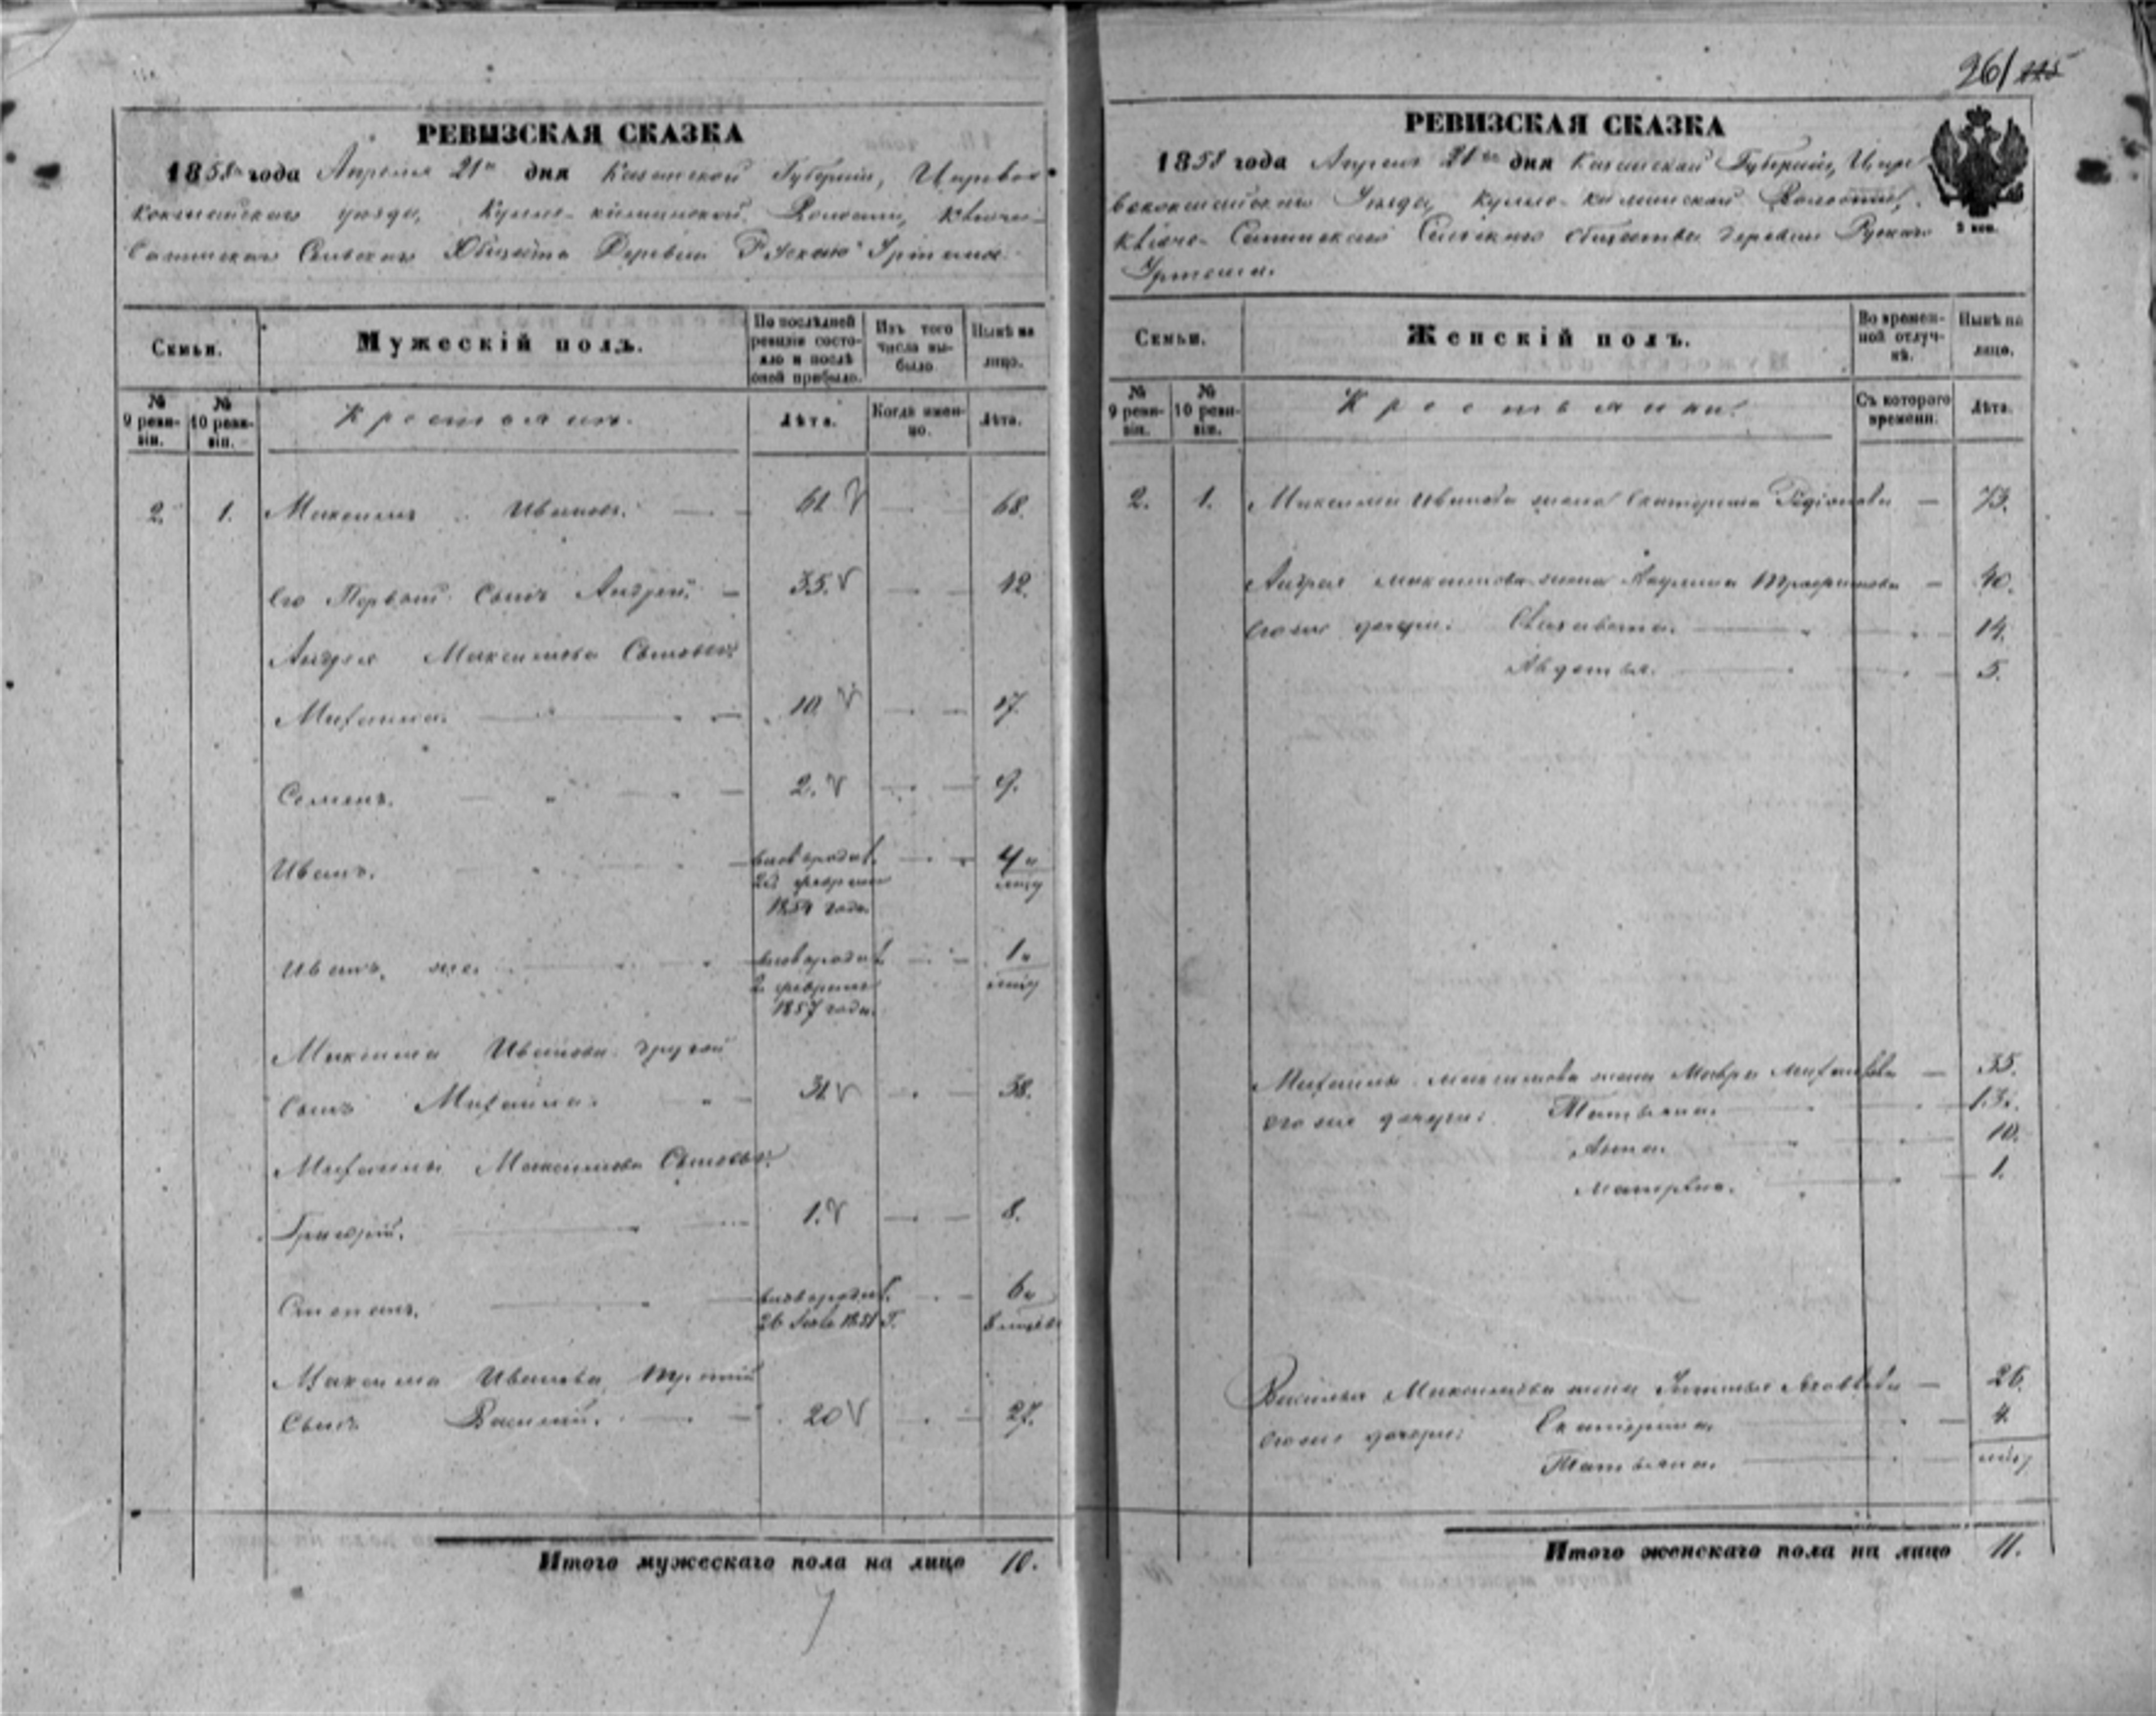 261 225
РЕВИЗСКАЯ СКАЗКА
1858 года Апреля 21го дня Казанской Губернии, Царево
кокшайскаго уезда, Кулле-Киминской Волости, Ключи-
Сапинскаго Сельскаго Общества Деревни Рускаго Уртема
Семьи.
Мужескій полъ.
По послѣдней ревизіи состояло и послѣ оной прибыло.
Изъ того числа выбыло
Нынѣ на лицо.
№ 9 ревизіи.
№ 10 ревизіи.
Крестьянъ.
Лѣта.
Когда именно.
Лѣта.
2. 1. Максимъ Ивановъ. 61 68.
Его Первый Сынъ Андрей 35. 42.
Андрея Максимова Сыновья:
Михаила. 10 17.
Семенъ. 2. 9.
Иванъ. 4
1854 года.
Иванъ же 1
2 февраля
1857 года.
Максима Иванова другой
Сынъ Михаила. 31 38.
Михаилы Максимова Сыновья:
Григорій. 1. 8.
Степанъ. 6
26 1851 г.
Максима Иванова третій
Сынъ Василій. 20 27.
Итого мужескаго пола на лицо 10.
РЕВИЗСКАЯ СКАЗКА
1858 года Апреля 21го дня Казанской Губерніи, Царе
вококшайскаго Уезда, Кулле-Киминской Волости,
Ключе-Сапинскаго Сельскаго общества деревни Рускаго
Уртема.
3 коп.
Семьи.
Женскій полъ.
Во временной отлучкѣ.
Нынѣ на лицо.
№ 9 ревизіи.
№ 10 ревизіи.
Крестьянки.
Съ котораго времени.
Лѣта.
2. 1. Максима Иванова жена Екатерина Родіонова 73.
Андрея Максимова жена Акулина 40.
Его же дочери: Елизавета. 14.
Авдотья. 5.
Михаилы Максимова жена Мавра Михайлова 35.
Его же дочери: Татьяна. 13.
Анна. 10.
Матрена. 1.
Василья Максимова жена 26.
Его же дочери: Екатерина 4.
Татьяна.
Итого женскаго пола на лицо 11.